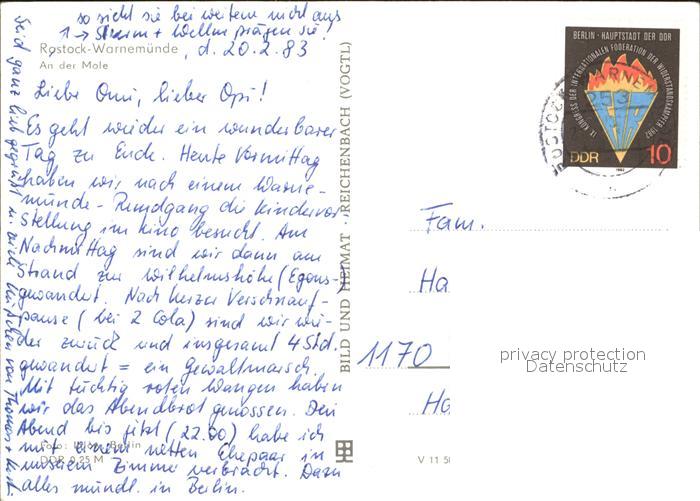 so sieht sie bei weitem nicht aus
↑→ Sturm + Wellen prägen sie!
Rostock-Warnemünde, d. 20.2.83
An der Mole
Liebe Omi, lieber Opi!
Es geht wieder ein wunderbarer
Tag zu Ende. Heute Vormittag
haben wir nach einem Warne-
münde-Rundgang die Kindervor-
stellung im Kino besucht. Am
Nachmittag sind wir dann am
Strand zur Wilhelmshöhe (Egons-
gewandert. Nach kurzer Verschnauf-
pause (bei 2 Cola) sind wir wie-
der zurück und insgesamt 4 Std.
gewandert = ein Gewaltmarsch.
Mit tüchtig roten Wangen haben
wir das Abendbrot genossen. Den
Abend bis jetzt (22.00) habe ich
mit einem netten Ehepaar in
unserem Zimmer verbracht. Dazu
alles mündl. in Berlin.
Seid ganz lieb gegrüßt u. viele Küßchen von Thomas +
Foto: Berlin
DDR 0,25 M
BILD UND HEIMAT REICHENBACH (VOGTL)
V 11 50
BERLIN · HAUPTSTADT DER DDR
IX. KONGRESS DER INTERNATIONALEN FÖDERATION DER WIDERSTANDSKÄMPFER 1982
FIR
DDR
10
1982
ROSTOCK
WARNE
Fam.
Ha
1170
Ho
privacy protection
Datenschutz